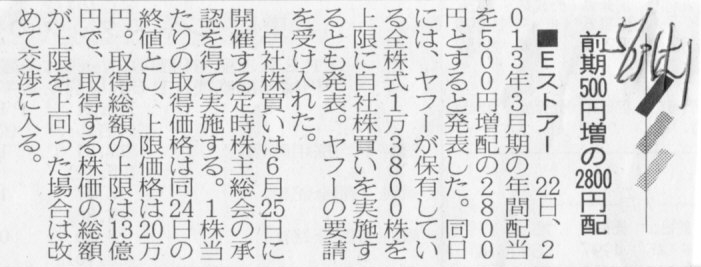 前期500円増の2800円配
■Eストアー　22日、2
013年3月期の年間配当
を500円増配の2800
円とすると発表した。同日
には、ヤフーが保有してい
る全株式1万3800株を
上限に自社株買いを実施す
るとも発表。ヤフーの要請
を受け入れた。
　自社株買いは6月25日に
開催する定時株主総会の承
認を得て実施する。1株当
たりの取得価格は同24日の
終値とし、上限価格は20万
円。取得総額の上限は13億
円で、取得する株価の総額
が上限を上回った場合は改
めて交渉に入る。